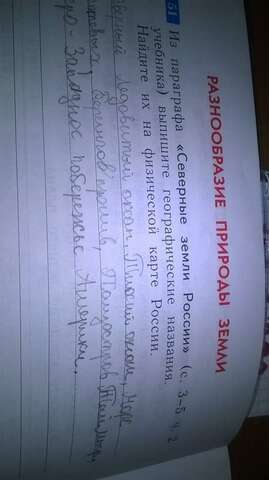 РАЗНООБРАЗИЕ ПРИРОДЫ ЗЕМЛИ
51 Из параграфа «Северные земли России» (с. 3–5 ч. 2
учебника) выпишите географические названия.
Найдите их на физической карте России.
Ледовитый океан, Тихий океан, Море
Берингов пролив, Таймыр,
Западное побережье Америки.